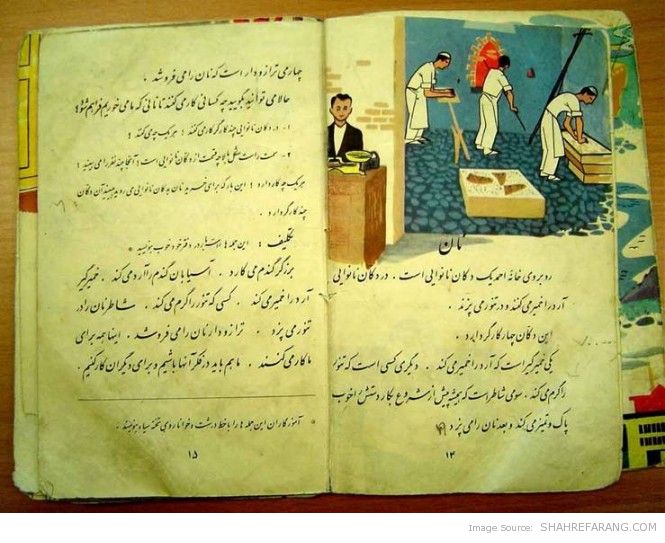 نان
روبروی خانهٔ احمد یک دکان نانوایی است . در دکان نانوایی
آرد را خمیر می‌کنند و در تنور می‌پزند .
این دکان چهار کارگر دارد .
یکی خمیرگیر است که آرد را خمیر می‌کند . دیگری کسی است که تنور
را گرم می‌کند . سومی شاطر است که همیشه پیش از شروع بکار دستش را خوب
پاک و تمیز می‌کند و بعد نان را می‌پزد .
۱۴
چهارمی ترازودار است که نان را می‌فروشد .
حالا می‌توانید بگویید چه کسانی کار می‌کنند تا نانی که ما می‌خوریم فراهم شود؟
۱- در دکان نانوایی چند کارگر کار می‌کنند ؟ هر یک چه می‌کند ؟
۲- سمت راست شکل بالا چه قسمت از دکان نانوایی است ؟ آنجا چند نفر را می‌بینید ؟
هر یک چه کار دارد ؟ این بار که برای خرید نان به دکان نانوایی می‌روید ببینید آن دکان
چند کارگر دارد .
تکلیف : این جمله‌ها را در دفتر خود خوب بنویسید
برزگر گندم می‌کارد . آسیابان گندم را آرد می‌کند . خمیرگیر
آرد را خمیر می‌کند . کسی که تنور را گرم می‌کند . شاطر نان را در
تنور می‌پزد . ترازودار نان را می‌فروشد . اینها همه برای
ما کار می‌کنند . ما هم باید در فکر آنها باشیم و برای دیگران کار کنیم .
آموزگاران این جمله‌ها را با خط درشت و خوانا روی تختهٔ سیاه بنویسند .
۱۵
Image Source: SHAHREFARANG.COM